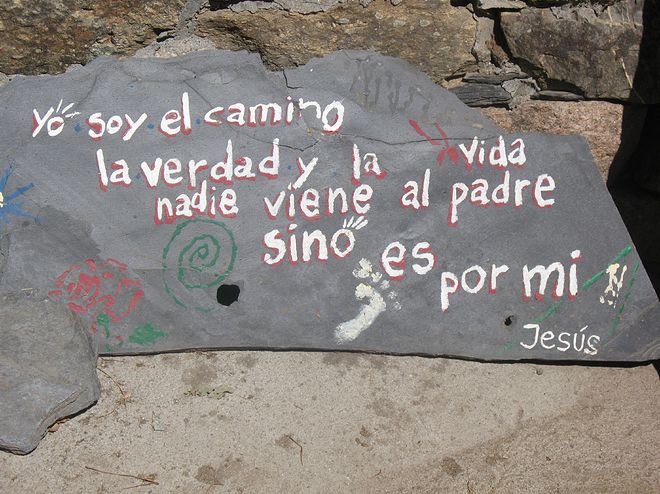 yo soy el camino
la verdad y la vida
nadie viene al padre
sino es por mi
Jesús